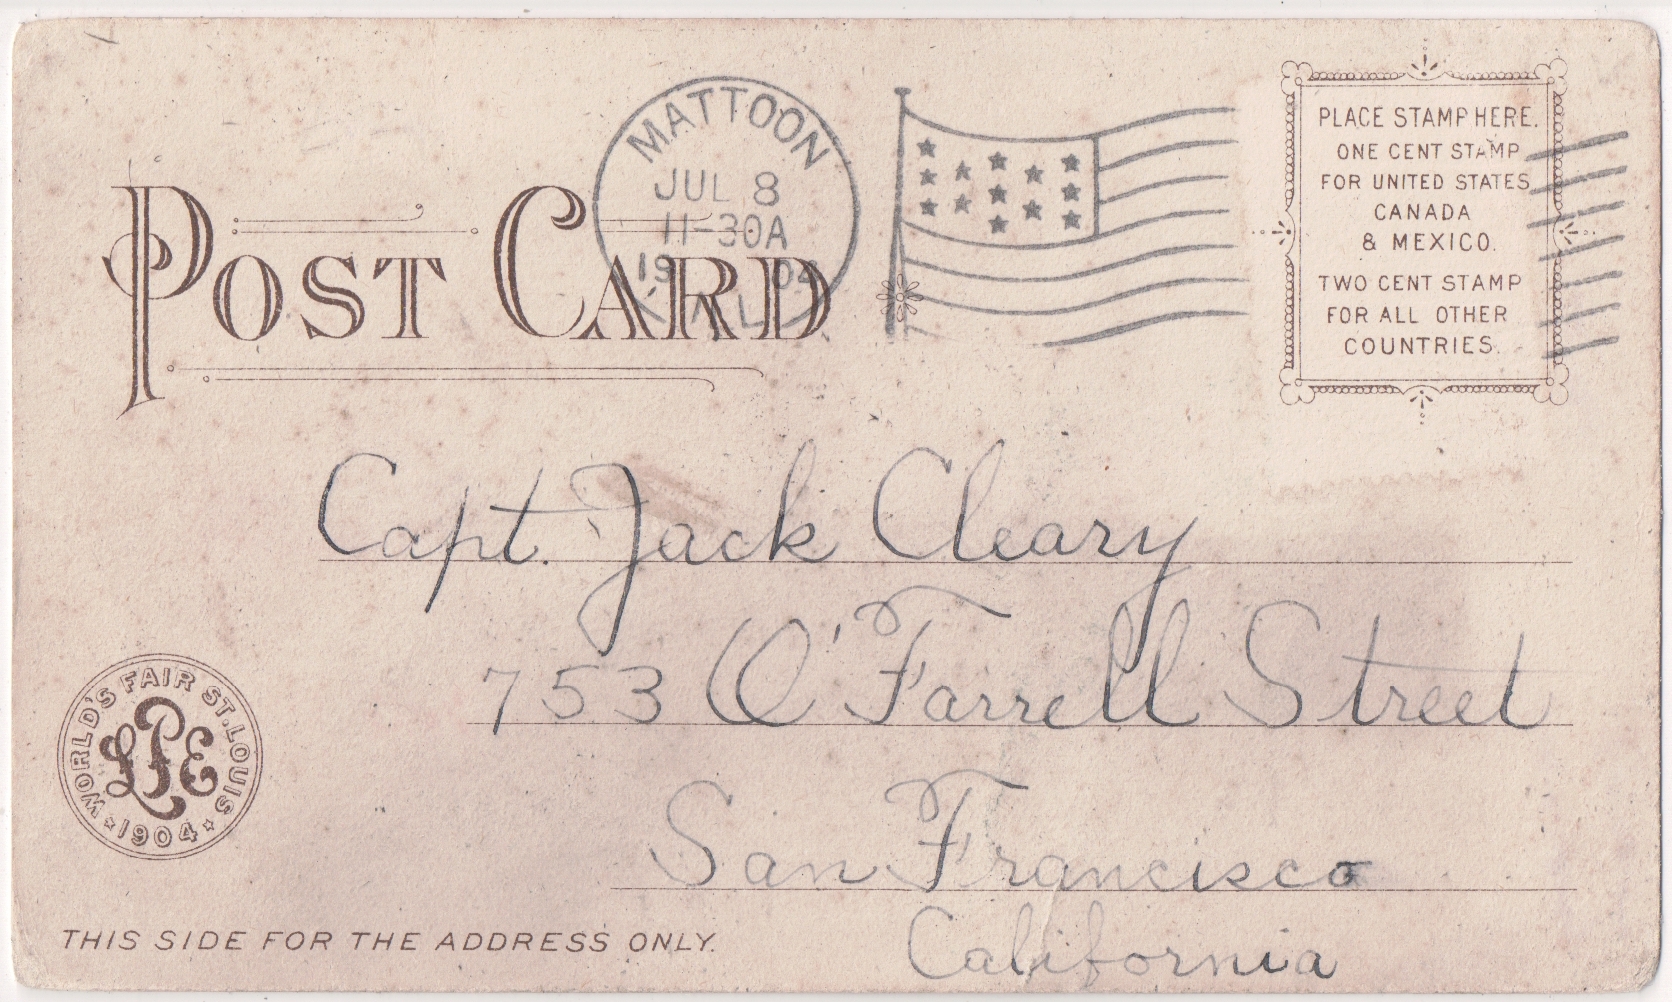 POST CARD
MATTOON
JUL 8
11-30A
1904
ILL.
PLACE STAMP HERE.
ONE CENT STAMP
FOR UNITED STATES
CANADA
& MEXICO.
TWO CENT STAMP
FOR ALL OTHER
COUNTRIES.
Capt. Jack Cleary
753 O'Farrell Street
San Francisco
California
WORLD'S FAIR ST. LOUIS
LPE
★1904★
THIS SIDE FOR THE ADDRESS ONLY.